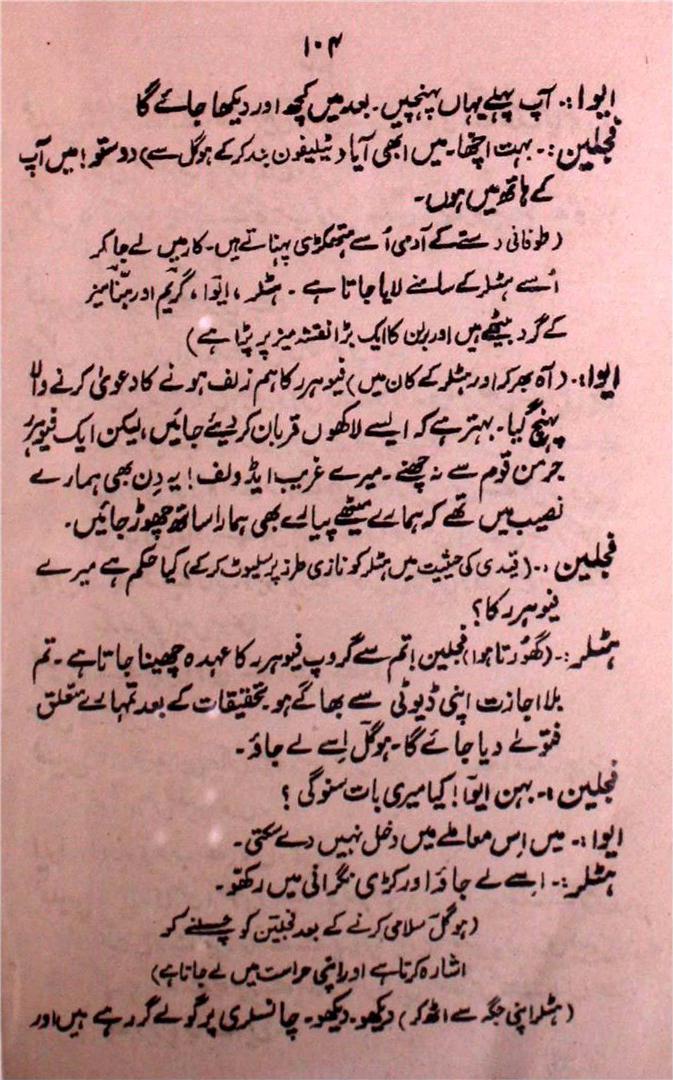 ۱۰۴
ایوا:۔ آپ پہلے یہاں پہنچیں۔ بعد میں کچھ اور دیکھا جائے گا
فجلین:۔ بہت اچھا۔ میں ابھی آیا (ٹیلیفون بند کرکے ہوگل سے) دوستو! میں آپ
کے ہاتھ میں ہوں۔
(طوفانی دستے کے آدمی اُسے ہتھکڑی پہناتے ہیں۔ کار میں لے جا کر
اُسے ہٹلر کے سامنے لایا جاتا ہے۔ ہٹلر، ایوا، گریم اور ہنّا میز
کے گرد بیٹھے ہیں اور برلن کا ایک بڑا نقشہ میز پر پڑا ہے)
ایوا:۔ (آہ بھر کر اور ہٹلر کے کان میں) فیوہرر کا ہم زلف ہونے کا دعویٰ کرنے والا
پہنچ گیا۔ بہتر ہے کہ ایسے لاکھوں قربان کر دیئے جائیں، لیکن ایک فیوہرر
جرمن قوم سے نہ چھنے۔ میرے غریب ایڈولف! یہ دِن بھی ہمارے
نصیب میں تھے کہ ہمارے میٹھے پیالے بھی ہمارا ساتھ چھوڑ جائیں۔
فجلین:۔ (قیدی کی حیثیت میں ہٹلر کو نازی طرز پر سلیوٹ کرکے) کیا حکم ہے میرے
فیوہرر کا؟
ہٹلر:۔ (گھُورتا ہوا) فجلین! تم سے گروپ فیوہرر کا عہدہ چھینا جاتا ہے۔ تم
بلا اجازت اپنی ڈیوٹی سے بھاگے ہو۔ تحقیقات کے بعد تمہارے متعلق
فتوےٰ دیا جائے گا۔ ہوگل اِسے لے جاؤ۔
فجلین:۔ بہن ایوا! کیا میری بات سنو گی؟
ایوا:۔ میں اِس معاملے میں دخل نہیں دے سکتی۔
ہٹلر:۔ اِسے لے جاؤ اور کڑی نگرانی میں رکھو۔
(ہوگل سلامی کرنے کے بعد فجلین کو چلنے کو
اشارہ کرتا ہے اور اپنی حراست میں لے جاتا ہے)
(ہٹلر اپنی جگہ سے اٹھ کر) دیکھو۔ دیکھو۔ چانسلری پر گولے گر رہے ہیں اور